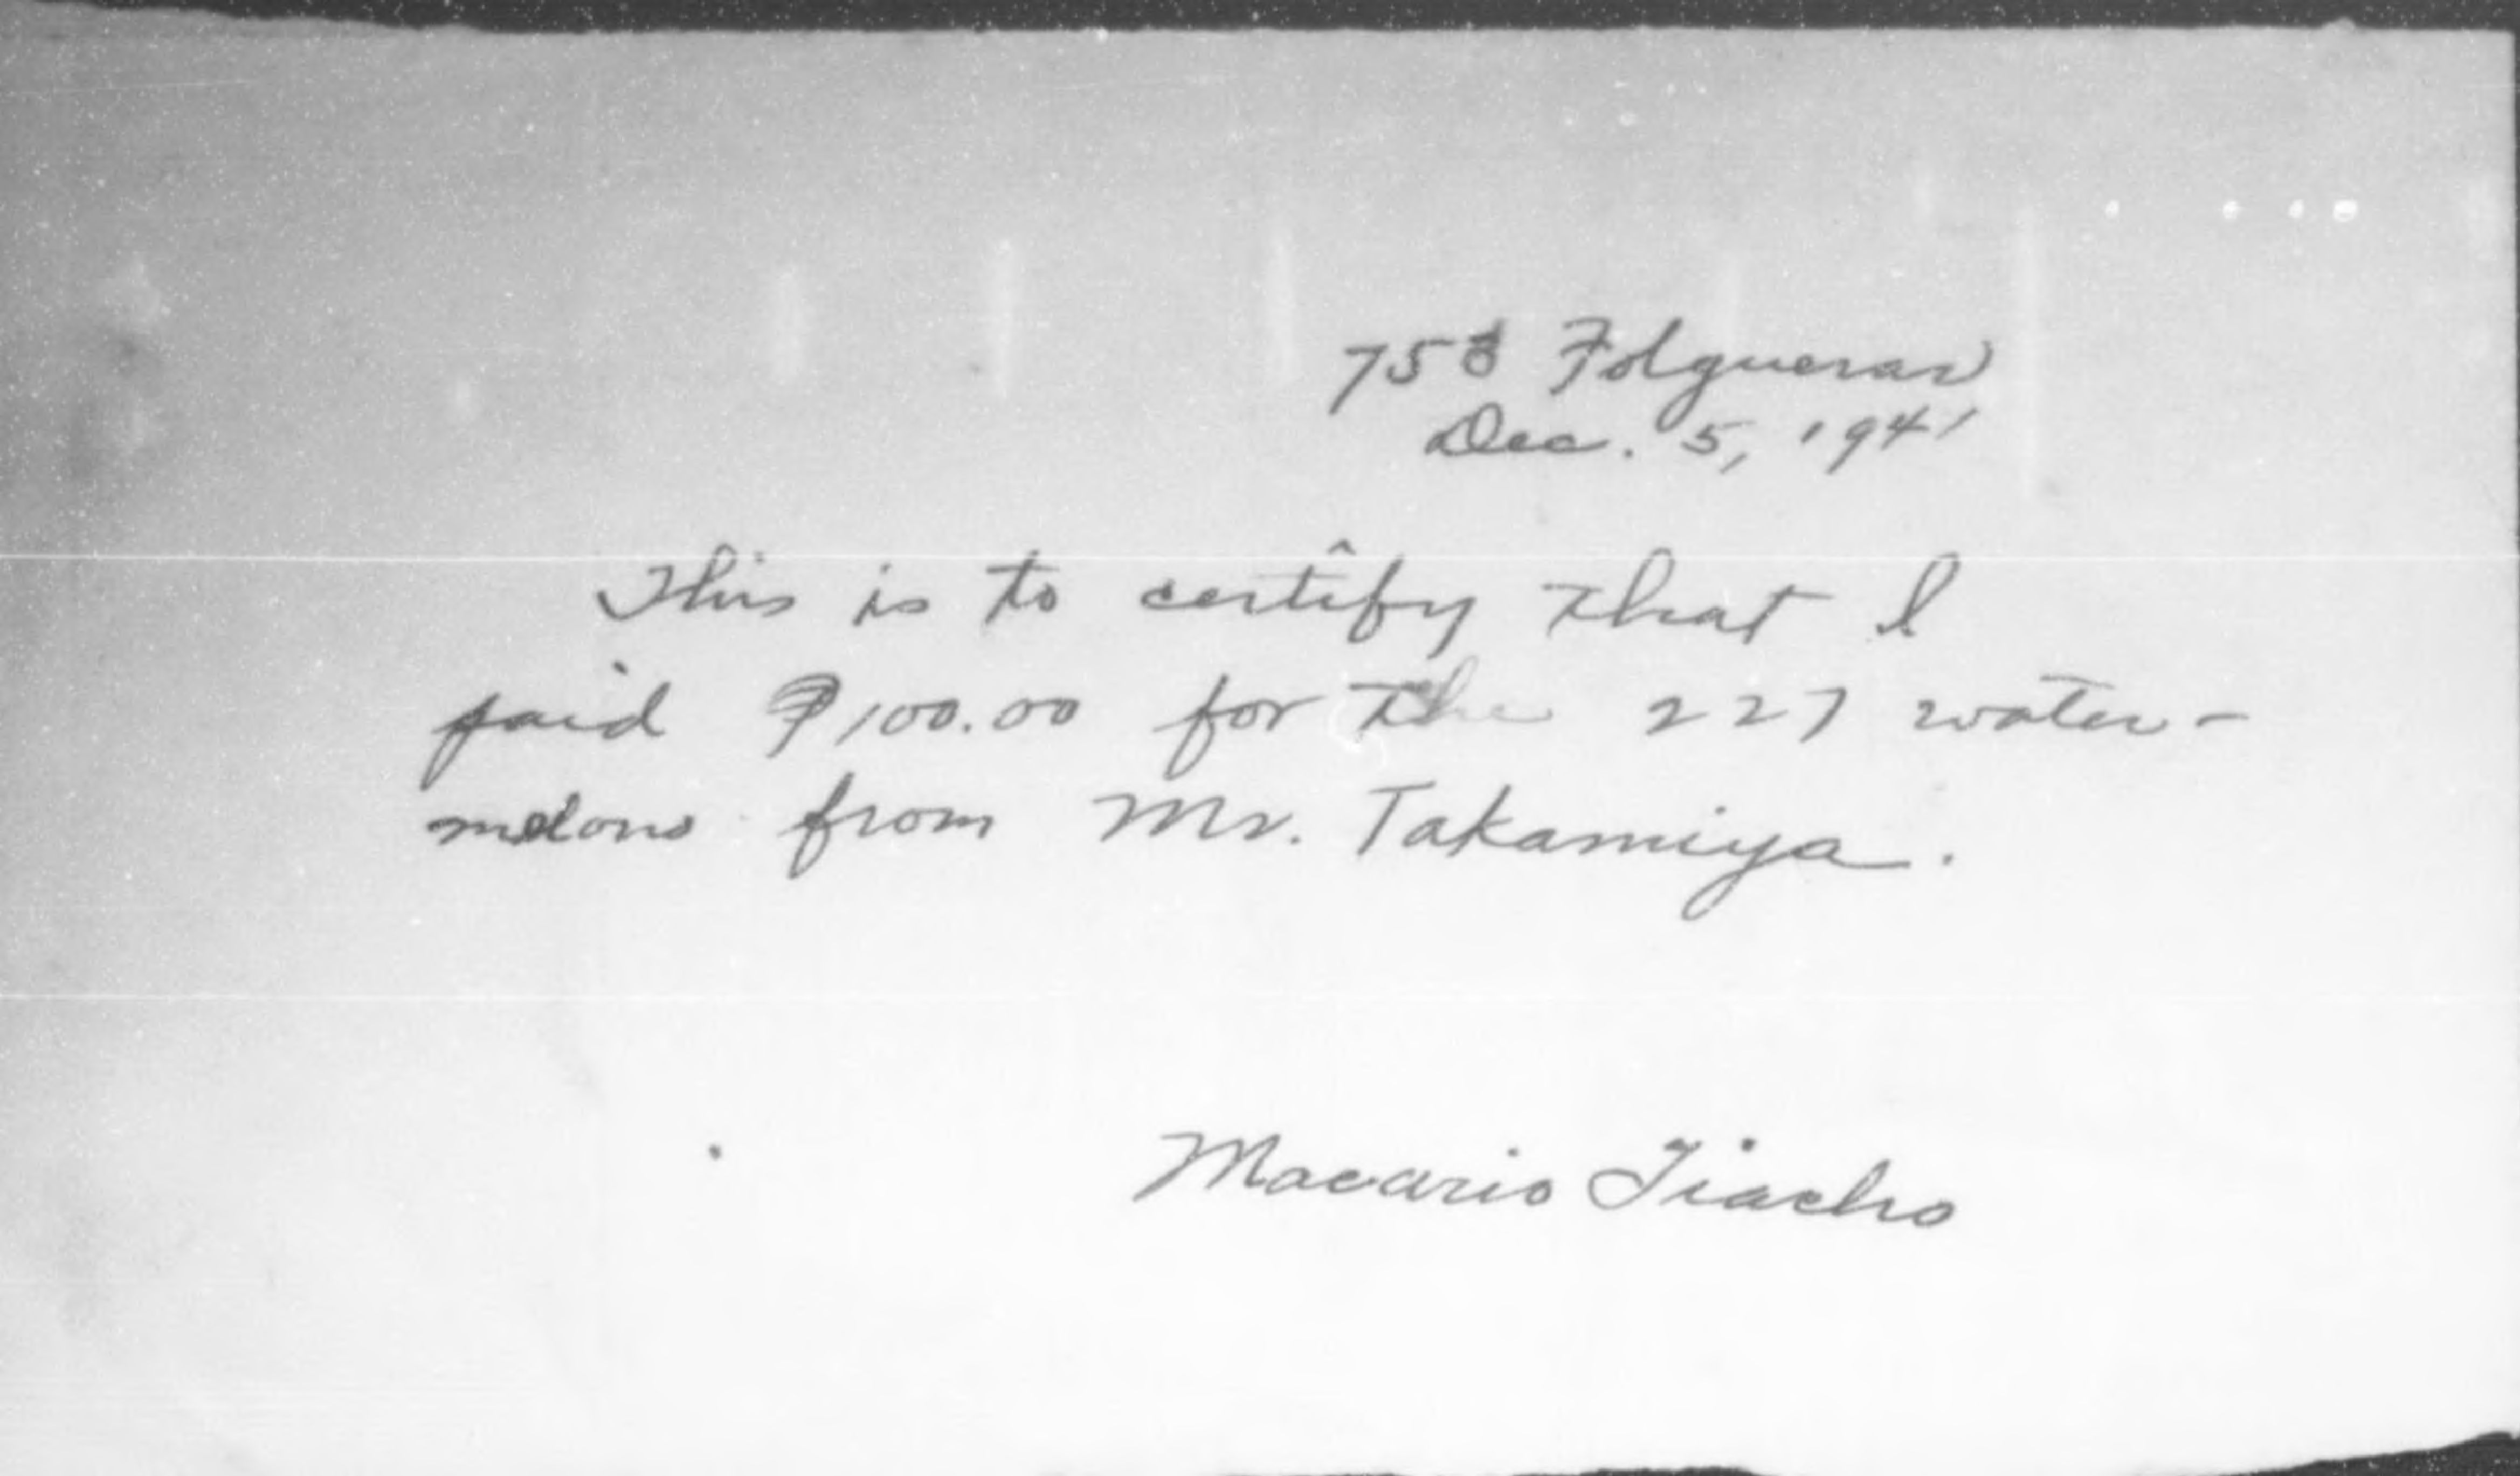 758 Folgueras
Dec. 5, 1941
This is to certify that I
paid ₱100.00 for the 227 water-
melons from Mr. Takamiya.
Macario Tiacho